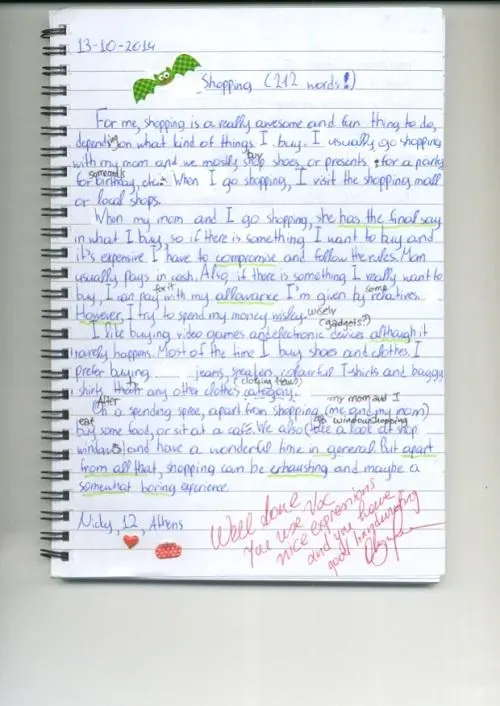 13-10-2014
Shopping (212 words!)
For me, shopping is a really awesome and fun thing to do,
depending on what kind of things I buy. I usually go shopping
buy
with my mom and we mostly shoes, or presents for a party
someone's
for birthday, etc. When I go shopping, I visit the shopping mall
or local shops.
When my mom and I go shopping, she has the final say
in what I buy, so if there is something I want to buy and
it's expensive I have to compromise and follow the rules. Mom
usually pays in cash. Also, if there is something I really want to
for it some
buy, I can pay with my allowance I'm given by relatives.
wisely
However, I try to spend my money
(gadgets?)
I like buying video games and electronic devices although it
rarely happens. Most of the time I buy shoes and clothes. I
prefer buying jeans, sneakers, colourful T-shirts and baggy
(clothing items)
shirts, than any other clothes category.
After my mom and I
a spending spree, apart from shopping (me and my mom)
eat go window shopping
buy some food, or sit at a café. We also (take a look at shop
windows) and have a wonderful time in general. But apart
from all that, shopping can be exhausting and maybe a
somewhat boring experience.
Nicky, 12, Athens
Well done
You use
nice expressions
and you have
good handwriting